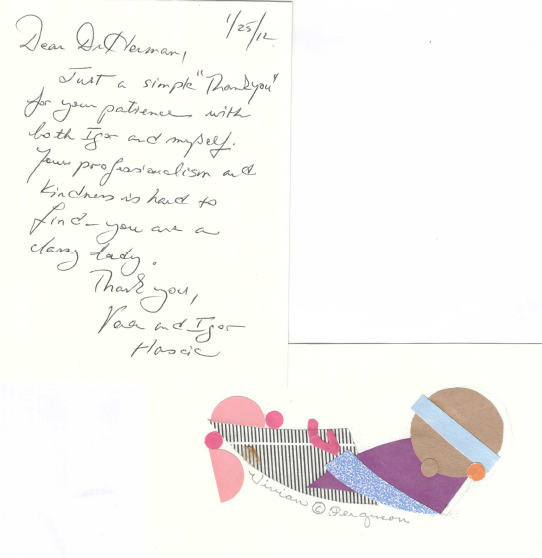 1/25/12
Dear Dr. Herman,
Just a simple "Thank you"
for your patience with
both Igor and myself.
Your professionalism and
kindness is hard to
find – you are a
classy lady.
Thank you,
and Igor
Vivian © Ferguson